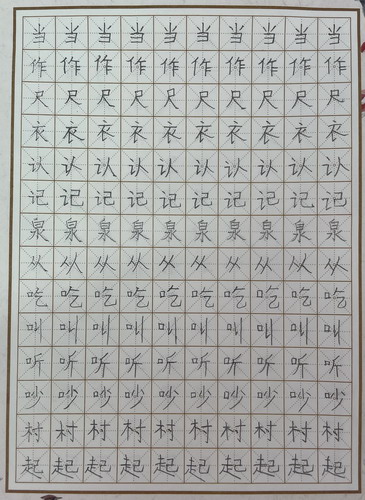 当当当当当当当当当当
作作作作作作作作作作
尺尺尺尺尺尺尺尺尺尺
衣衣衣衣衣衣衣衣衣衣
认认认认认认认认认认
记记记记记记记记记记
泉泉泉泉泉泉泉泉泉泉
从从从从从从从从从从
吃吃吃吃吃吃吃吃吃吃
叫叫叫叫叫叫叫叫叫叫
听听听听听听听听听听
吵吵吵吵吵吵吵吵吵吵
村村村村村村村村村村
起起起起起起起起起起